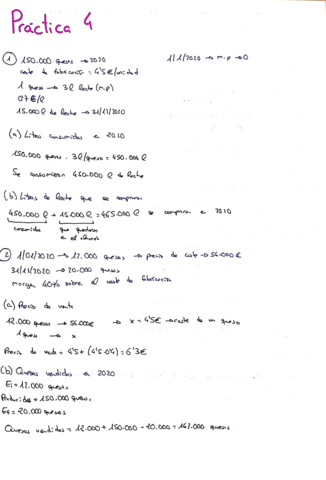 Práctica 4
① 150.000 quesos → 2020
1/1/2020 → m.p → 0
coste de fabricación = 4'5€/unidad
1 queso → 3l leche (m.p)
0'7€/l
15.000 l de leche → 31/12/2020
(a) Litros consumidos en 2020
150.000 quesos · 3l/queso = 450.000 l
Se consumieron 450.000 l de leche
(b) Litros de leche que se compraron
450.000 l + 15.000 l = 465.000 l se compraron en 2020
consumidos que quedaron
en el almacén
② 1/01/2020 → 12.000 quesos → precio de coste → 54.000€
31/12/2020 → 20.000 quesos
margen 40% sobre el coste de fabricación
(a) Precio de venta
12.000 quesos → 54.000€ → x = 4'5€ → coste de un queso
1 queso → x
Precio de venta = 4'5 + (4'5·0'4) = 6'3€
(b) Quesos vendidos en 2020
Ei = 12.000 quesos
Producidos = 150.000 quesos
Ef = 20.000 quesos
Quesos vendidos = 12.000 + 150.000 - 20.000 = 142.000 quesos